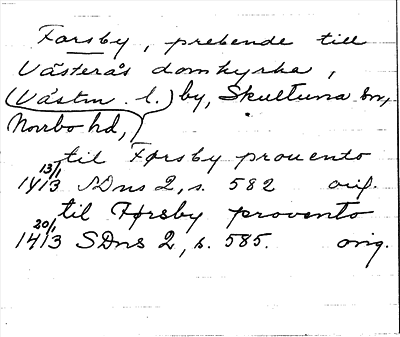 Forsby, prebende till
Västerås domkyrka,
(Västm. l.) by, Skultuna sn,
Norrbo hd,)
til Førsby prouento
13/1 1413 SDns 2, s. 582 orig.
til Førsby provento
20/1 1413 SDns 2, s. 585. orig.